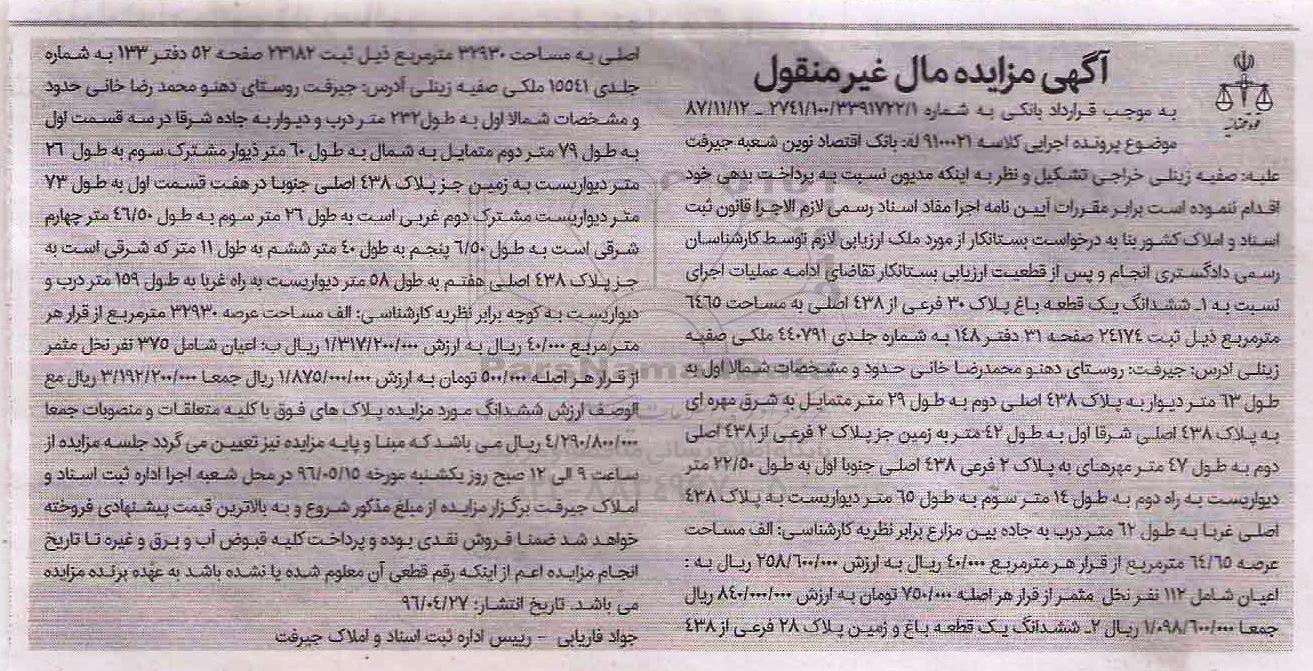 آگهی مزایده مال غیرمنقول
به موجب قرارداد بانکی به شماره ۲۷٤۱/۱۰۰/۳۳۹۱۷۲۲/۱ ـ ۸۷/۱۱/۱۲
موضوع پرونده اجرایی کلاسه ۹۱۰۰۰۲۱ له: بانک اقتصاد نوین شعبه جیرفت
علیه: صفیه زینلی خراجی تشکیل و نظر به اینکه مدیون نسبت به پرداخت بدهی خود
اقدام ننموده است برابر مقررات آیین نامه اجرا مفاد اسناد رسمی لازم الاجرا قانون ثبت
اسناد و املاک کشور بنا به درخواست بستانکار از مورد ملک ارزیابی لازم توسط کارشناسان
رسمی دادگستری انجام و پس از قطعیت ارزیابی بستانکار تقاضای ادامه عملیات اجرای
نسبت به ۱ـ ششدانگ یک قطعه باغ پلاک ۳۰ فرعی از ٤۳۸ اصلی به مساحت ٦٤٦٥
مترمربع ذیل ثبت ۲٤۱۷٤ صفحه ۳۱ دفتر ۱٤۸ به شماره جلدی ٤٤۰۷۹۱ ملکی صفیه
زینلی آدرس: جیرفت: روستای دهنو محمدرضا خانی حدود و مشخصات شمالا اول به
طول ٦۳ متر دیوار به پلاک ٤۳۸ اصلی دوم به طول ۲۹ متر متمایل به شرق مهره ای
به پلاک ٤۳۸ اصلی شرقا اول به طول ٤۲ متر به زمین جز پلاک ۲ فرعی از ٤۳۸ اصلی
دوم به طول ٤۷ متر مهرهای به پلاک ۲ فرعی ٤۳۸ اصلی جنوبا اول به طول ۲۲/٥۰ متر
دیواریست به راه دوم به طول ۱٤ متر سوم به طول ٦٥ متر دیواریست به پلاک ٤۳۸
اصلی غربا به طول ٦۲ متر درب به جاده بین مزارع برابر نظریه کارشناسی: الف مساحت
عرصه ٦٤/٦٥ مترمربع از قرار هر مترمربع ٤۰/۰۰۰ ریال به ارزش ۲٥۸/٦۰۰/۰۰۰ ریال به :
اعیان شامل ۱۱۲ نفر نخل مثمر از قرار هر اصله ۷٥۰/۰۰۰ تومان به ارزش ۸٤۰/۰۰۰/۰۰۰ ریال
جمعا ۱/۰۹۸/٦۰۰/۰۰۰ ریال ۲ـ ششدانگ یک قطعه باغ و زمین پلاک ۲۸ فرعی از ٤۳۸
اصلی به مساحت ۳۲۹۳۰ مترمربع ذیل ثبت ۲۳۱۸۲ صفحه ٥۲ دفتر ۱۳۳ به شماره
جلدی ۱٥٥٤۱ ملکی صفیه زینلی آدرس: جیرفت روستای دهنو محمد رضا خانی حدود
و مشخصات شمالا اول به طول ۲۳۲ متر درب و دیوار به جاده شرقا در سه قسمت اول
به طول ۷۹ متر دوم متمایل به شمال به طول ٦۰ متر دیوار مشترک سوم به طول ۲٦
متر دیواریست به زمین جز پلاک ٤۳۸ اصلی جنوبا در هفت قسمت اول به طول ۷۳
متر دیواریست مشترک دوم غربی است به طول ۲٦ متر سوم به طول ٤٦/٥۰ متر چهارم
شرقی است به طول ٦/٥۰ پنجم به طول ٤۰ متر ششم به طول ۱۱ متر که شرقی است به
جز پلاک ٤۳۸ اصلی هفتم به طول ٥۸ متر دیواریست به راه غربا به طول ۱٥۹ متر درب و
دیواریست به کوچه برابر نظریه کارشناسی: الف مساحت عرصه ۳۲۹۳۰ مترمربع از قرار هر
متر مربع ٤۰/۰۰۰ ریال به ارزش ۱/۳۱۷/۲۰۰/۰۰۰ ریال ب: اعیان شامل ۳۷٥ نفر نخل مثمر
از قرار هر اصله ٥۰۰/۰۰۰ تومان به ارزش ۱/۸۷٥/۰۰۰/۰۰۰ ریال جمعا ۳/۱۹۲/۲۰۰/۰۰۰ ریال مع
الوصف ارزش ششدانگ مورد مزایده پلاک های فوق با کلیه متعلقات و منصوبات جمعا
٤/۲۹۰/۸۰۰/۰۰۰ ریال می باشد که مبنا و پایه مزایده نیز تعیین می گردد جلسه مزایده از
ساعت ۹ الی ۱۲ صبح روز یکشنبه مورخه ۹٦/۰٥/۱٥ در محل شعبه اجرا اداره ثبت اسناد و
املاک جیرفت برگزار مزایده از مبلغ مذکور شروع و به بالاترین قیمت پیشنهادی فروخته
خواهد شد ضمنا فروش نقدی بوده و پرداخت کلیه قبوض آب و برق و غیره تا تاریخ
انجام مزایده اعم از اینکه رقم قطعی آن معلوم شده یا نشده باشد به عهده برنده مزایده
می باشد. تاریخ انتشار: ۹٦/۰٤/۲۷
جواد فاریابی - رییس اداره ثبت اسناد و املاک جیرفت